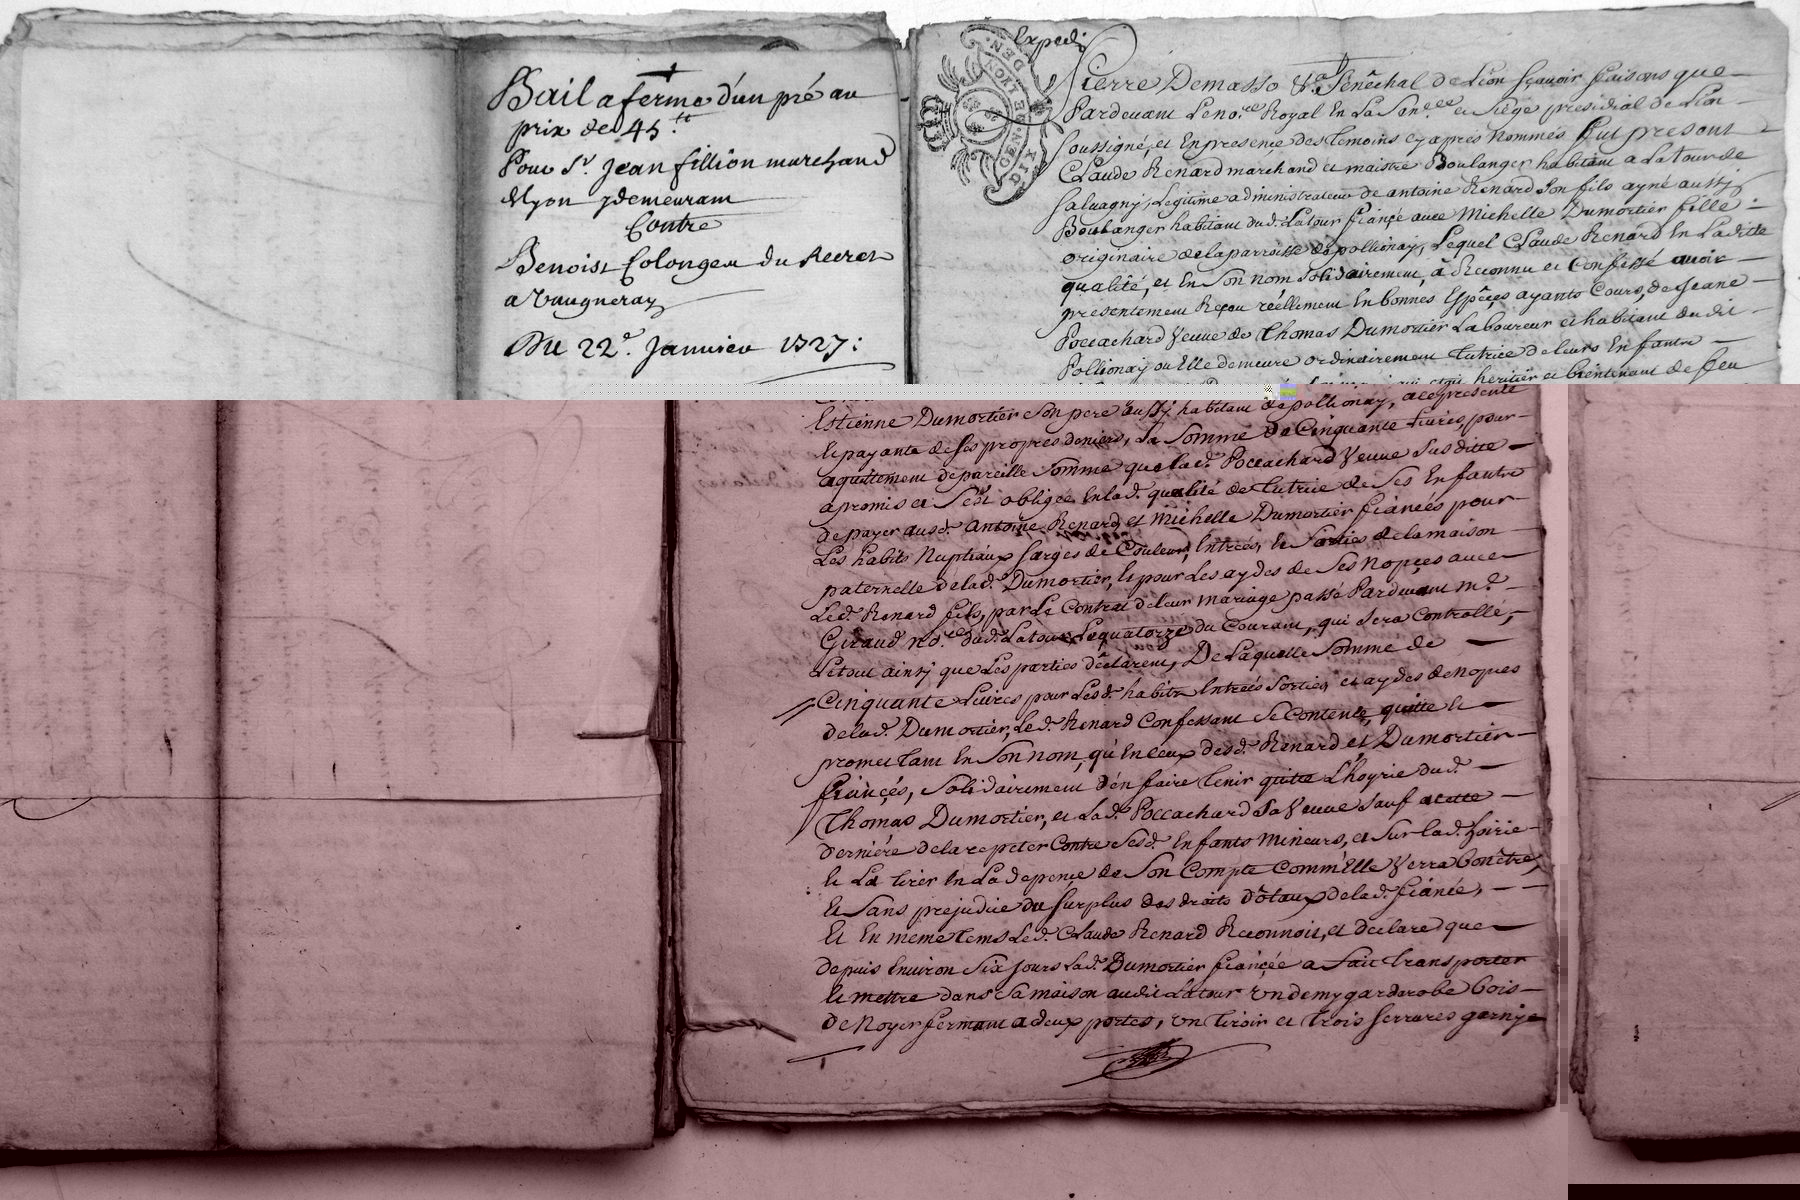 Bail a ferme d'un pré au
prix de 45 .tt
Pour Sr. Jean fillion marchand
a Lyon y demeurant
Contre
Benoist Colongeu du Recret
a Vaugneray
Du 22e. Janvier 1727:
Expedi
GEN. DE LYON
DIX DENIERS
Pierre Demasso &a. Senêchal de Lion sçavoir faisons que
Pardevant Le no.re Royal En La Sen.ée et siège presidial de Lion
soussigné, et En presence des temoins cy apres Nommés fut present
Claude Renard marchand et maistre Boulanger habitant a La tour de
salvagny, Legitime administrateur de antoine Renard son fils ayné aussy
Boulanger habitant dud. Latour fiançé avec Michelle Dumortier fille
originaire de la parroisse de pollionay, Lequel Claude Renard En Laditte
qualité, et En son nom solidairement, à Reconnu et Confessé avoir
presentement Reçou réellement En bonnes Espêces ayants Cours, de Jeane
Poccachard Veuve de Thomas Dumortier Laboureur et habitant du dit
Pollionay ou Elle demeure ordinairement tutrice de leurs Enfants
qui etoit heritier et bientenant de feu
Estienne Dumortier son pere aussy habitant de pollionay, acepresente
Et payante de ses propres deniers, La somme de Cinquante Livres, pour
aquittement de pareille somme que lad. Poccachard Veuve susditte
a promis et s'est obligée En lad. qualité de tutrice de ses Enfants
de payer ausd. antoine Renard et Michelle Dumortier fiancés pour
Les habits Nuptiaux sarges de Couleur, Entrées, Et sorties de la maison
paternelle de lad. Dumortier, Et pour Les aydes de ses Nopçes avec
Led. Renard fils, par Le Contrat de leur mariage passé Pardevant m.e
Giraud no.re dud. Latour Le quatorze du Courant, qui sera Controllé,
Le tout ainsy que Les parties dêclarent, De Laquelle somme de
Cinquante Livres pour Lesd. habits Entrées sorties et aydes de Nopces
de lad. Dumortier, Led. Renard Confessant se Contente, quitte Et
promettant En son nom, qu'En Ceux desd. Renard et Dumortier
fiançés, solidairement d'en faire tenir quitte L'hoyrie dud.
Thomas Dumortier, et Lad. Poccachard sa Veuve sauf a cette
derniére de la repeter Contre sesd. Enfants Mineurs, et sur lad. hoirie
Et La tirer En La depence de son Compte Comm'Elle Verra bon être,
Et sans prejudice du surplus des droits dôtaux de lad. fiancée,
Et En meme tems Led. Claude Renard Reconnoit, et declare que
depuis Environ six jours Lad. Dumortier fiançée a fait transporter
Et mettre dans sa maison audit Latour un demy garderobe bois
de Noyer fermant a deux portes, un tiroir et trois serrures garnye